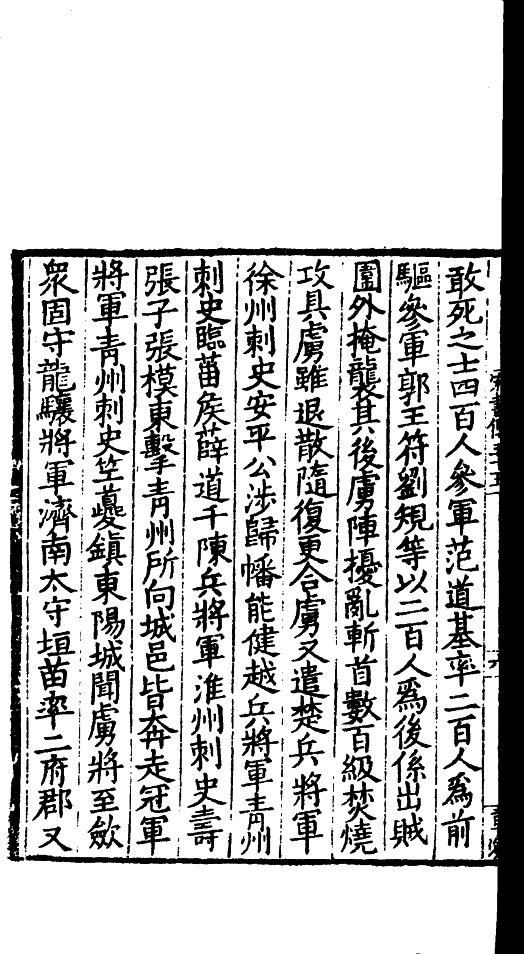 敢死之士四百人參軍范道基率二百人爲前
驅參軍郭王符劉規等以二百人爲後係出賊
圍外掩襲其後虜陣擾亂斬首數百級焚燒
攻具虜雖退散隨復更合虜又遣楚兵將軍
徐州刺史安平公涉歸幡能健越兵將軍青州
刺史臨菑侯薛道千陳兵將軍淮州刺史壽
張子張模東擊青州所向城邑皆奔走冠軍
將軍青州刺史竺夔鎮東陽城聞虜將至歛
衆固守龍驤將軍濟南太守垣苗率二府郡又